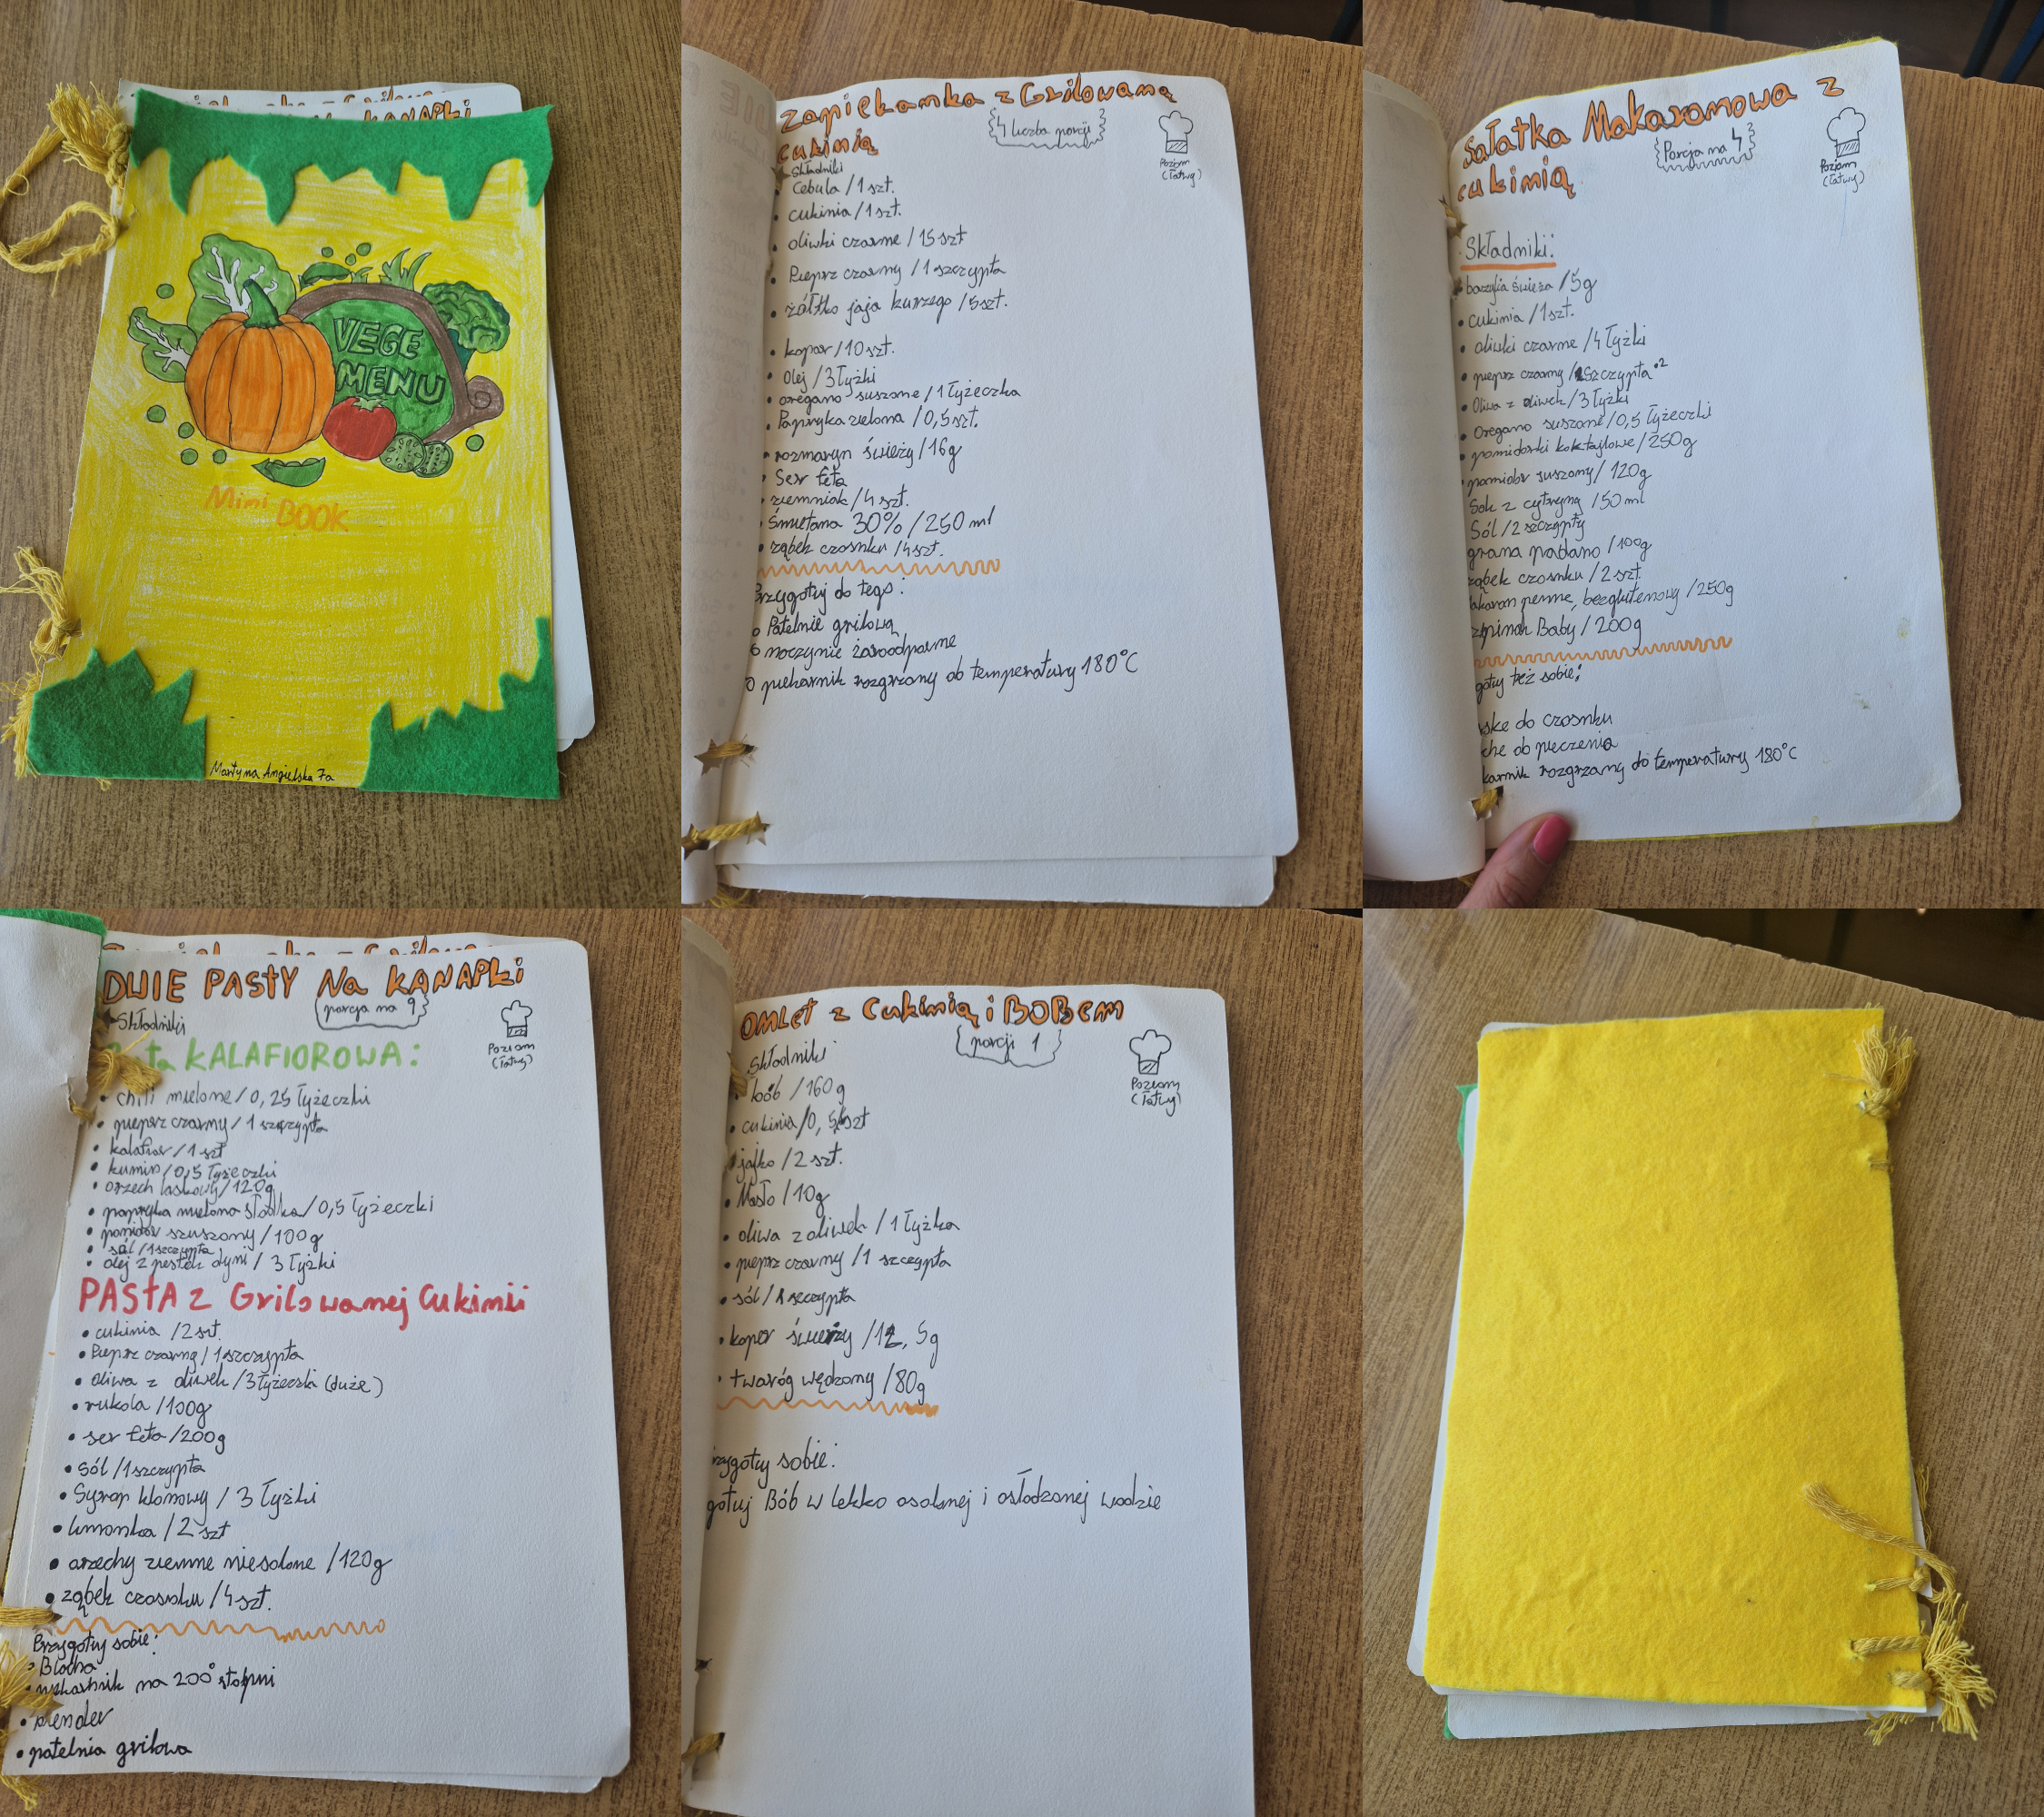 na KANAPKI
VEGE
MENU
Mini BOOK
Martyna Angielska 7a
Zapiekanka z Grilowaną
cukinią
4 liczba porcji
Poziom
(łatwy)
Składniki
• Cebula / 1 szt.
• cukinia / 1 szt.
• oliwki czarne / 15 szt
• Pieprz czarny / 1 szczypta
• żółtko jaja kurzego / 5 szt.
• kopar / 10 szt.
• Olej / 3 łyżki
• oregano suszone / 1 łyżeczka
• Papryka zielona / 0,5 szt.
• rozmaryn świeży / 16g
• Ser feta
• ziemniak / 4 szt.
• Śmietana 30% / 250 ml
• ząbek czosnku / 4 szt.
Przygotuj do tego:
o Patelnie grilową
o naczynie żaroodparne
o piekarnik rozgrzany do temperatury 180°C
Sałatka Makaronowa z
cukinią
Porcja na 4
Poziom
(łatwy)
Składniki:
• bazylia świeża / 5g
• cukinia / 1 szt.
• oliwki czarne / 4 łyżki
• pieprz czarny / szczypta •2
• Oliwa z oliwek / 3 łyżki
• Oregano suszone / 0,5 łyżeczki
• pomidorki koktajlowe / 250g
• pomidor suszony / 120g
Sok z cytryny / 50 ml
Sól / 2 szczypty
grana padano / 100g
ząbek czosnku / 2 szt.
akaron penne, bezglutenowy / 250g
szpinak Baby / 200g
gotuj też sobie:
skę do czosnku
chę do pieczenia
karnik rozgrzany do temperatury 180°C
DWIE PASTY Na KANAPKi
Składniki
porcja na 9
Poziom
(łatwy)
KALAFIOROWA:
• chili mielone / 0,25 łyżeczki
• pieprz czarny / 1 szczypta
• kalafior / 1 szt
• kumin / 0,5 łyżeczki
• orzech laskowy / 120g
• papryka mielona słodka / 0,5 łyżeczki
• pomidor szuszony / 100g
• sól / 1 szczypta
• olej z pestek dyni / 3 łyżki
PASTA z Grilowanej Cukinii
• cukinia / 2 szt.
• Pieprz czarny / 1 szczypta
• oliwa z oliwek / 3 łyżeczki (duże)
• rukola / 100g
• ser feta / 200g
• Sól / 1 szczypta
• Syrop klonowy / 3 łyżki
• limonka / 2 szt
• orzechy ziemne niesolone / 120g
• ząbek czosnku / 4 szt.
Przygotuj sobie:
• Blacha
• piekarnik na 200° stopni
• blender
• patelnia grilowa
OMLET z Cukinią i BOBem
porcji 1
Poziom
(łatwy)
Składniki
• bób / 160g
• cukinia / 0,5 szt
• jajko / 2 szt.
• Masło / 10g
• oliwa z oliwek / 1 łyżka
• pieprz czarny / 1 szczypta
• sól / 1 szczypta
• koper świeży / 12,5g
• twaróg wędzony / 80g
rzygotuj sobie:
gotuj Bób w lekko osolonej i osłodzonej wodzie